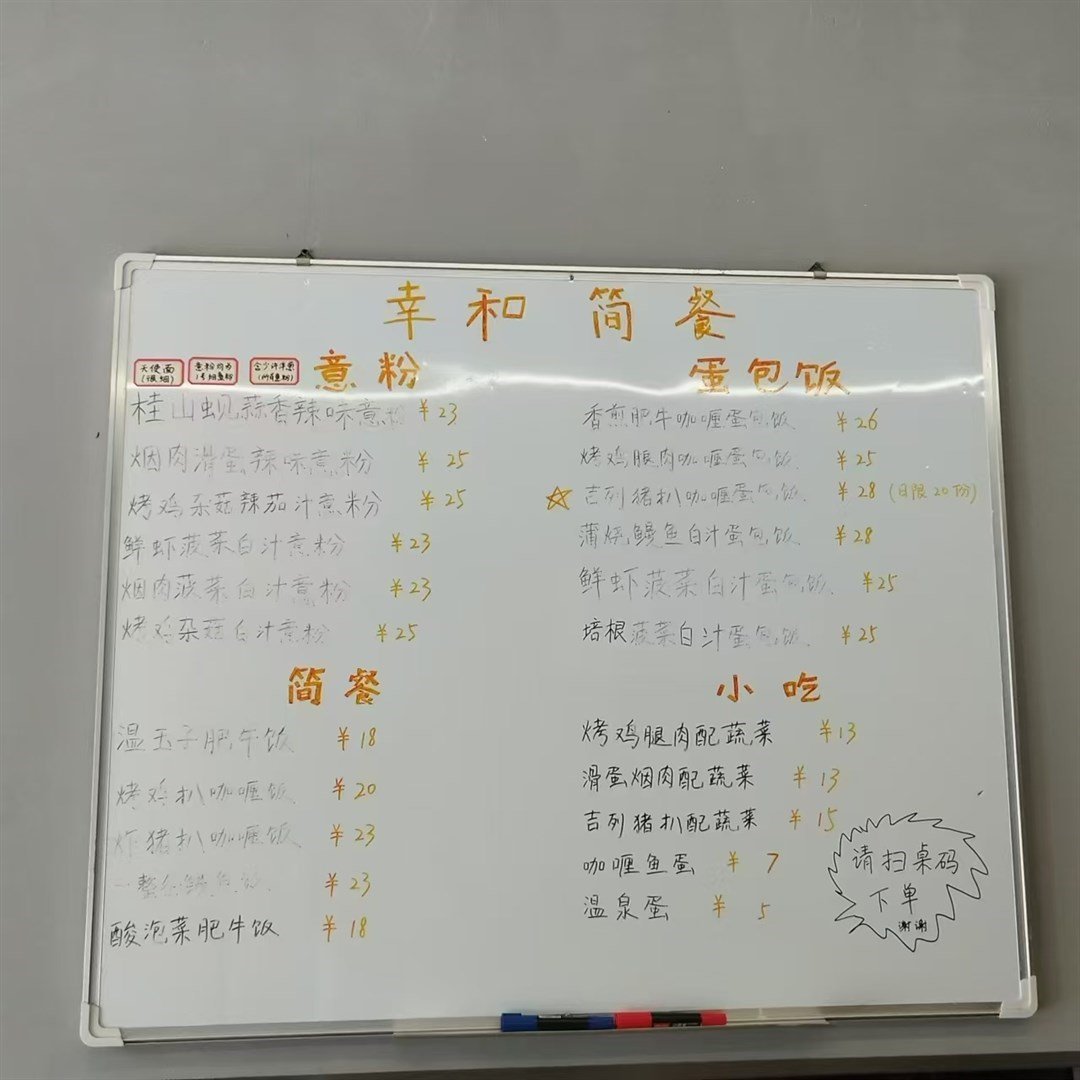 幸和简餐
天使面
(很细)
意粉均为
1号细意粉
含少许洋葱
(所有意粉)
意粉
桂山蚬蒜香辣味意粉 ¥23
烟肉滑蛋辣味意粉 ¥25
烤鸡杂菇辣茄汁意粉 ¥25
鲜虾菠菜白汁意粉 ¥23
烟肉菠菜白汁意粉 ¥23
烤鸡杂菇白汁意粉 ¥25
蛋包饭
香煎肥牛咖喱蛋包饭 ¥26
烤鸡腿肉咖喱蛋包饭 ¥25
吉列猪扒咖喱蛋包饭 ¥28 (日限20份)
蒲烧鳗鱼白汁蛋包饭 ¥28
鲜虾菠菜白汁蛋包饭 ¥25
培根菠菜白汁蛋包饭 ¥25
简餐
温玉子肥牛饭 ¥18
烤鸡扒咖喱饭 ¥20
炸猪扒咖喱饭 ¥23
一整条鳗鱼饭 ¥23
酸泡菜肥牛饭 ¥18
小吃
烤鸡腿肉配蔬菜 ¥13
滑蛋烟肉配蔬菜 ¥13
吉列猪扒配蔬菜 ¥15
咖喱鱼蛋 ¥7
温泉蛋 ¥5
请扫桌码
下单
谢谢